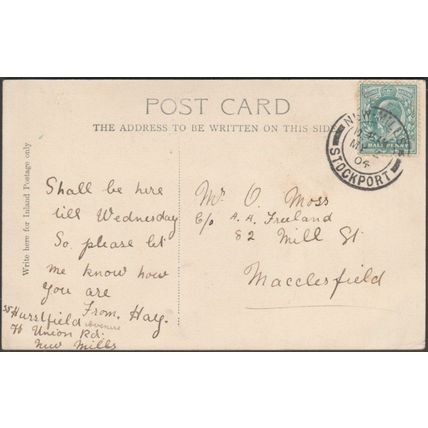 POST CARD
THE ADDRESS TO BE WRITTEN ON THIS SIDE
Write here for Inland Postage only
Shall be here
till Wednesday
So please let
me know how
you are
From. Hay.
Hurstfield
Union Rd.
New Mills
Mr O. Moss
C/o A. A. Freeland
82 Mill St
Macclesfield
NEW MILLS
MY
04
STOCKPORT
HALF PENNY